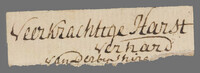 Veerkrachtige Harst
Vernard
van Derbyshire